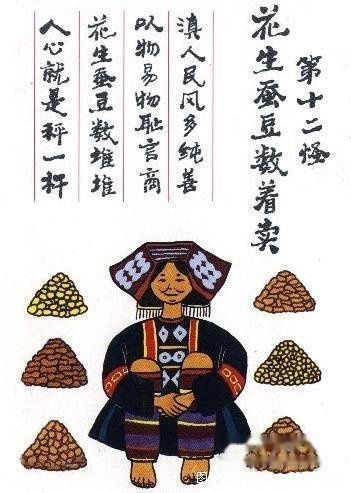 第十二怪
花生蚕豆数着卖
滇人民风多纯善
以物易物耻言商
花生蚕豆数堆堆
人心就是秤一杆